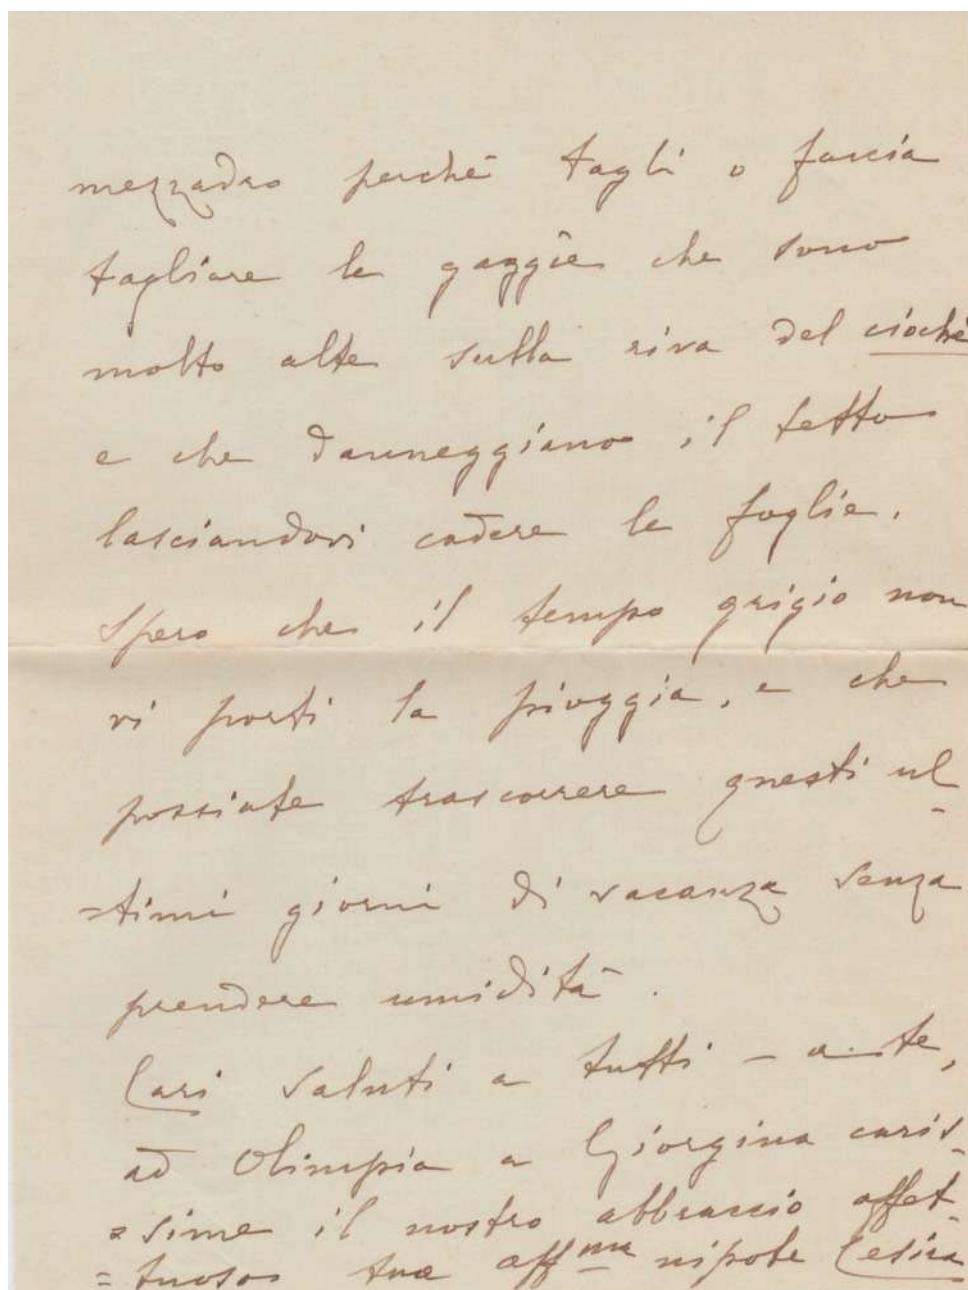 mezzadro perchè tagli o faccia
tagliare le gaggìe che sono
molto alte sulla riva del ciochè
e che danneggiano il tetto
lasciandovi cadere le foglie.
Spero che il tempo grigio non
vi porti la pioggia, e che
possiate trascorrere questi ul-
=timi giorni di vacanza senza
prendere umidità.
Cari saluti a tutti - a te,
ad Olimpia a Giorgina caris-
=sime il nostro abbraccio affet-
=tuoso tua aff.ma nipote